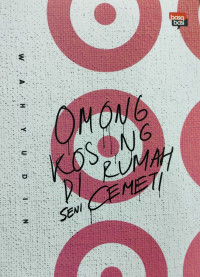 basa
basi
WAHYUDIN
OMONG
KOSONG
DI RUMAH
SENI CEMETI